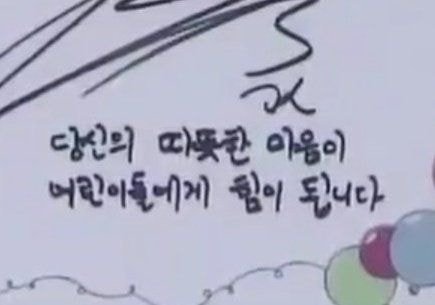 당신의 따뜻한 마음이
어린이들에게 힘이 됩니다